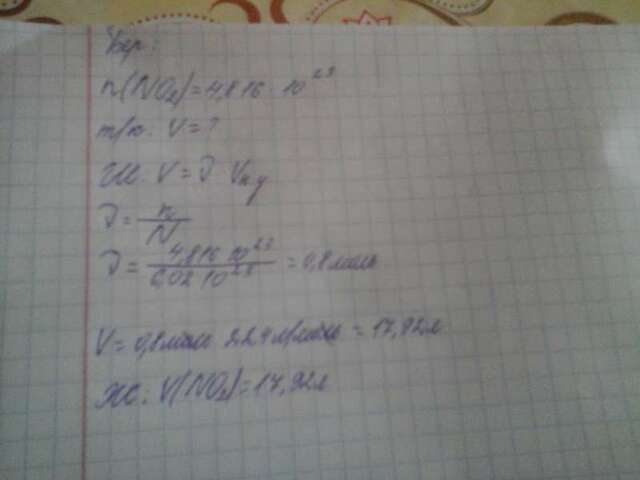 Бер:
n(NO₂)=4,816 · 10²³
т/к: V=?
Ш. V = ν Vн.у
ν = n/N
ν = 4,816 10²³ / 6,02 10²³ = 0,8 моль
V = 0,8 моль 22,4 л/моль = 17,92 л
Ж: V(NO₂)=17,92 л